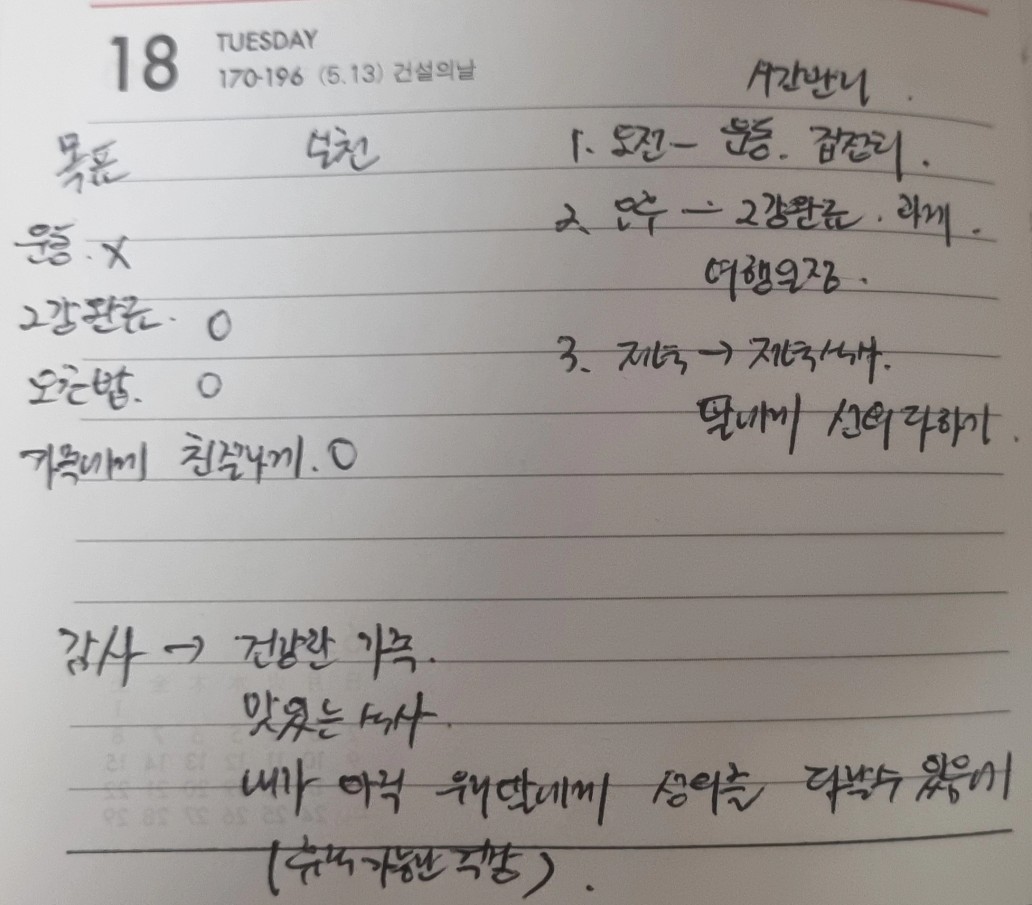 18 TUESDAY
170-196 (5.13) 건설의날
목표 실천
운동. X
2강완료. O
오찬밥. O
가족에게 친절하게. O
시간반니
1. 오전 - 운동. 집정리.
2. 오후 - 2강완료. 과제.
여행일정.
3. 저녁 → 저녁식사.
딸에게 성의다하기.
감사 → 건강한 가족.
맛있는 식사.
내가 아직 우리딸에게 성의를 다할수 있음에
(휴식가능한 직장).